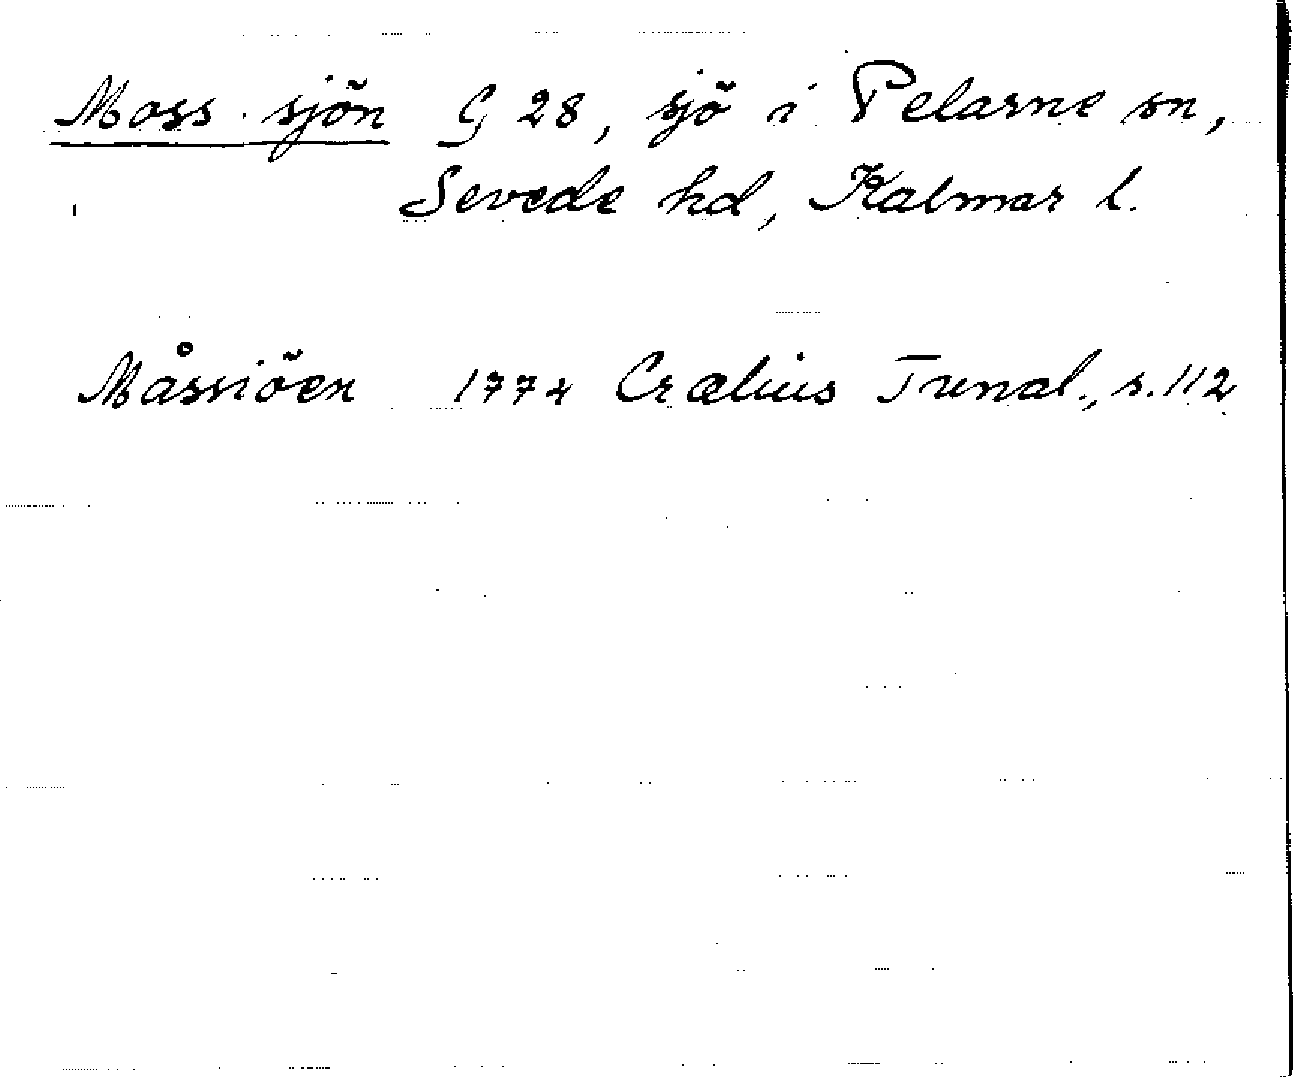 Moss-sjön G 28, sjö i Pelarne sn,
Sevede hd, Kalmar l.
Måssiöen 1774 Crælius Tunal., s. 112